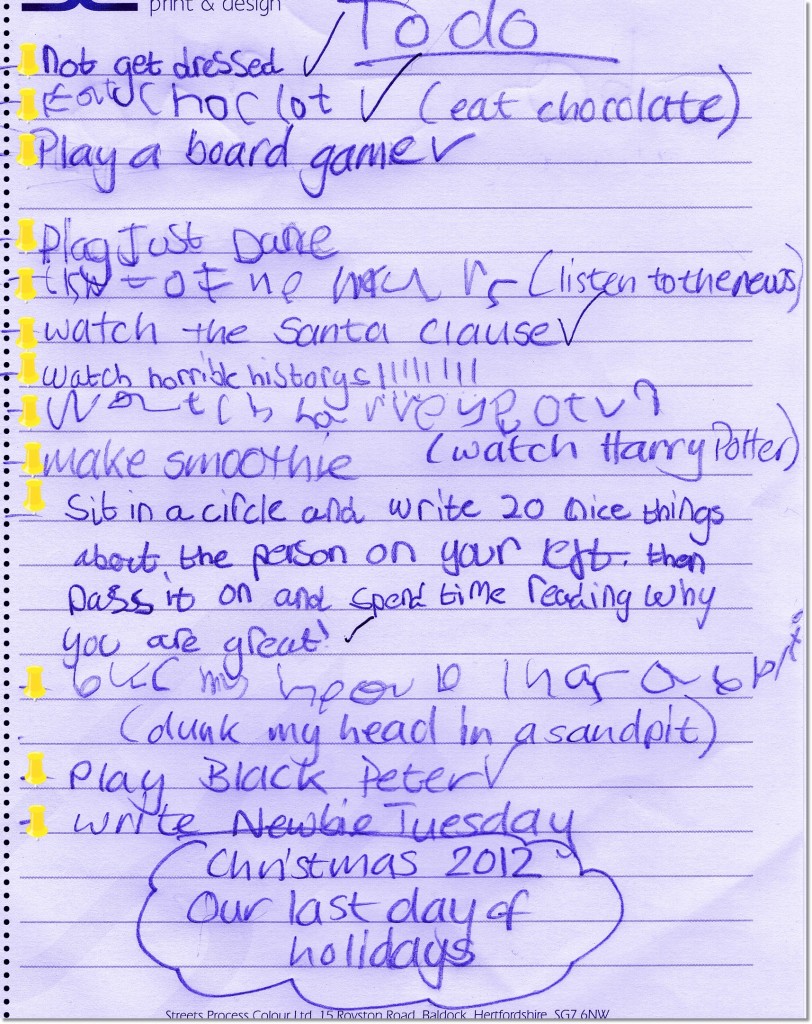 print & design
To do
Not get dressed ✓
Eat Choc lot ✓ (eat chocolate)
Play a board game ✓
Play Just Dance
(listen to the news)
watch the Santa Clause ✓
Watch horrible historys !!!!!!!!
(watch Harry Potter)
make smoothie
Sit in a circle and write 20 nice things
about the person on your left. then
pass it on and spend time reading why
you are great! ✓
my
(dunk my head in a sandpit)
Play Black Peter ✓
write Newbie Tuesday
Christmas 2012
Our last day of
holidays
Streets Process Colour Ltd, 15 Royston Road, Baldock, Hertfordshire, SG7 6NW